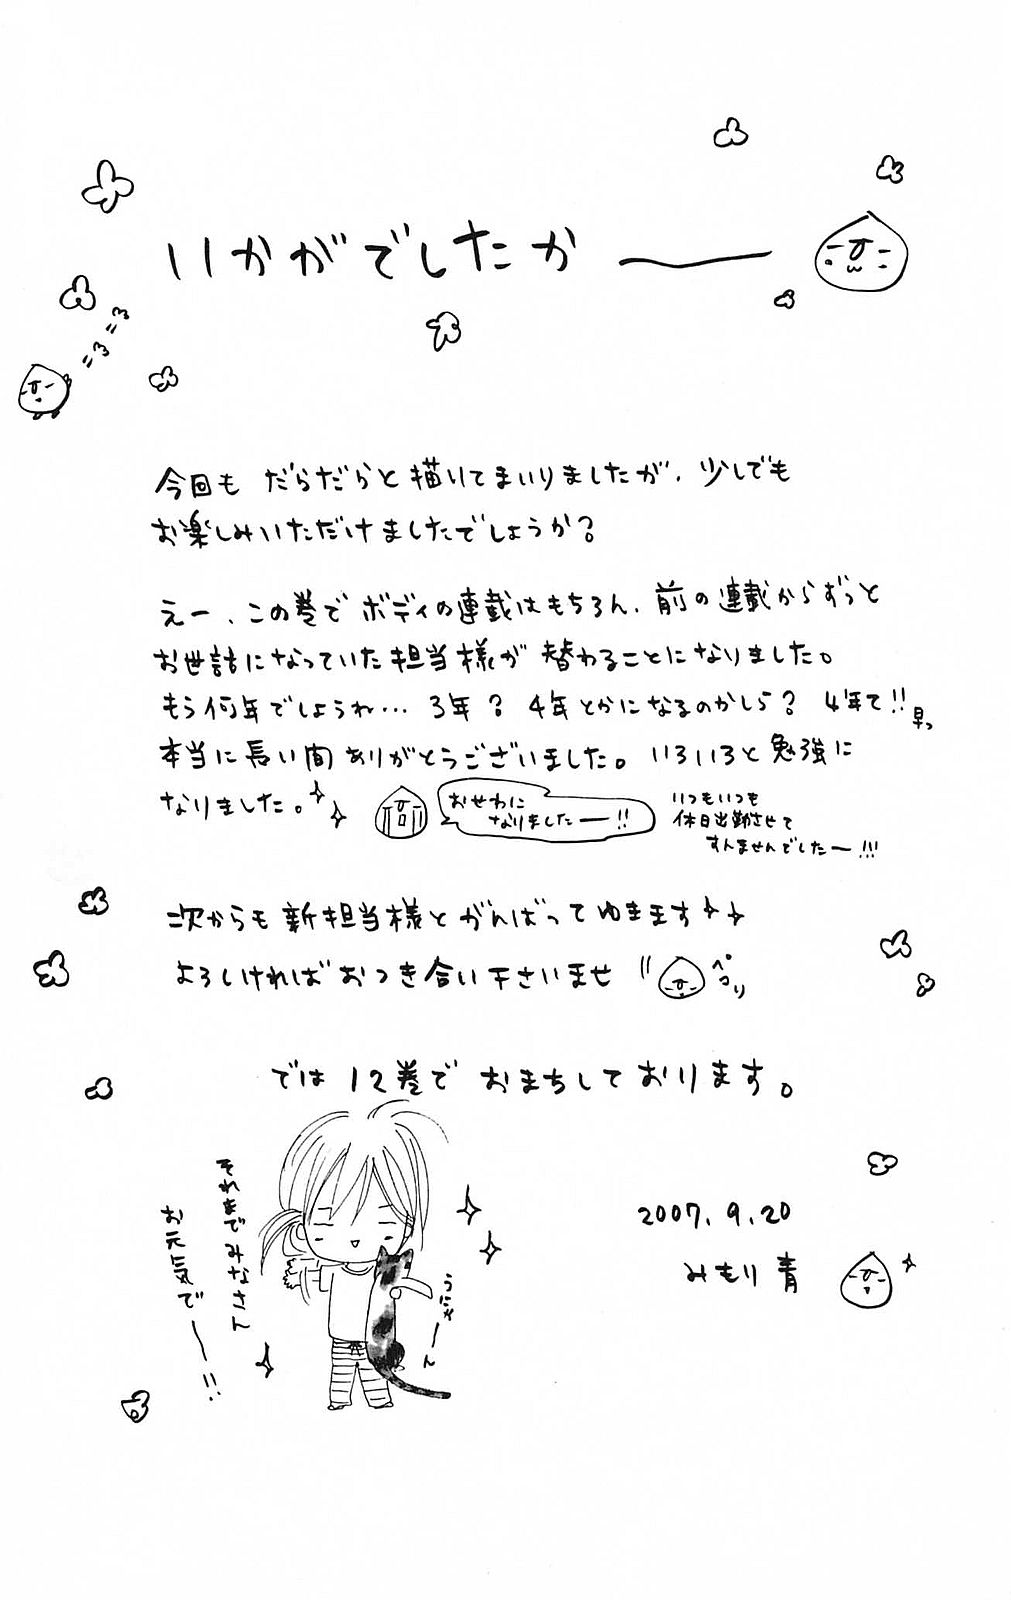 いかがでしたかー
今回も だらだらと描いてまいりましたが、少しでも
お楽しみいただけましたでしょうか？
えー、この巻でボディの連載はもちろん、前の連載からずっと
お世話になっていた担当様が 替わることになりました。
もう何年でしょうね… 3年？ 4年とかになるのかしら？ 4年て!! 早っ
本当に長い間ありがとうございました。いろいろと勉強に
なりました。
おせわに
なりましたー!!
いつもいつも
休日出勤させて
すんませんでしたー!!!
次からも新担当様とがんばってゆきます
よろしければおつき合い下さいませ
ペコリ
では12巻で おまちしております。
それまでみなさん
お元気でー!!
うにゃーん
2007.9.20
みもり 青